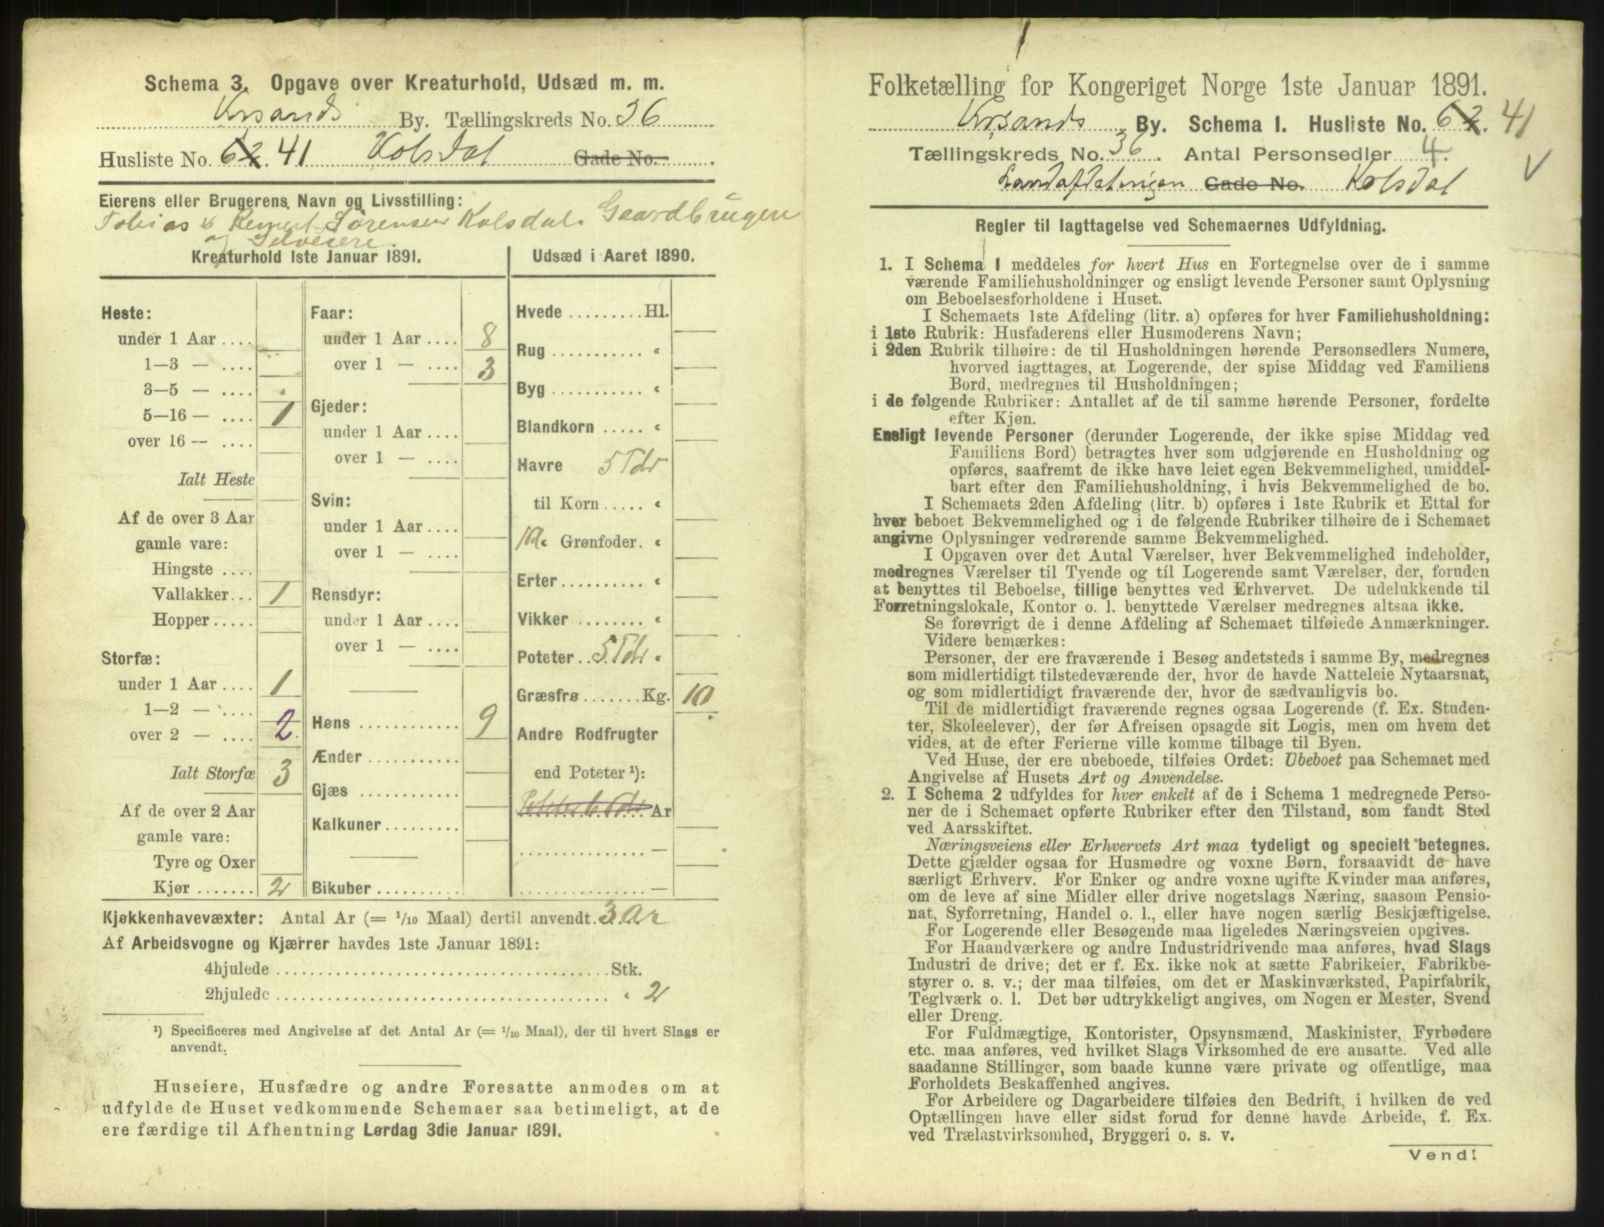 Schema 3. Opgave over Kreaturhold, Udsæd m. m.
Krsands By. Tællingskreds No. 36
Husliste No. 62. 41 Kolsdal Gade No. .
Eierens eller Brugerens Navn og Livsstilling:
Tobias Sørensen Kolsdal. Gaardbruger
Kreaturhold 1ste Januar 1891.
Heste:
under 1 Aar ....
1—3 — ....
3—5 — ....
5—16 — .... 1
over 16 — ....
Ialt Heste
Af de over 3 Aar
gamle vare:
Hingste ....
Vallakker... 1
Hopper.....
Storfæ:
under 1 Aar .... 1
1—2 — ....
over 2 — .... 2
Ialt Storfæ 3
Af de over 2 Aar
gamle vare:
Tyre og Oxer
Kjør ....... 2
Faar:
under 1 Aar .... 8
over 1 — .... 3
Gjeder:
under 1 Aar ....
over 1 — ....
Svin:
under 1 Aar ....
over 1 — ....
Rensdyr:
under 1 Aar ....
over 1 — ....
Høns ............ 9
Ænder ............
Gjæs ............
Kalkuner .........
Bikuber ..........
Udsæd i Aaret 1890.
Hvede .........Hl.
Rug ........... "
Byg ........... "
Blandkorn ..... "
Havre 5 Tdr
til Korn ..... "
Grønfoder. "
Erter.......... "
Vikker ........ "
Poteter.. 5 Tdr "
Græsfrø.......Kg. 10
Andre Rodfrugter
end Poteter ¹):
Poteter 6 Tdr Ar
............... —
............... —
Kjøkkenhavevæxter: Antal Ar (= 1/10 Maal) dertil anvendt. 3 Ar
Af Arbeidsvogne og Kjærrer havdes 1ste Januar 1891:
4hjulede ........................................Stk.
2hjulede ........................................ " 2
¹) Specificeres med Angivelse af det Antal Ar (= 1/10 Maal), der til hvert Slags er
anvendt.
Huseiere, Husfædre og andre Foresatte anmodes om at
udfylde de Huset vedkommende Schemaer saa betimeligt, at de
ere færdige til Afhentning Lørdag 3die Januar 1891.
Folketælling for Kongeriget Norge 1ste Januar 1891.
Krsands By. Schema I. Husliste No. 62. 41
Tællingskreds No. 36. Antal Personsedler 4.
Landafdelingen Gade No. Kolsdal
Regler til Iagttagelse ved Schemaernes Udfyldning.
1. I Schema 1 meddeles for hvert Hus en Fortegnelse over de i samme
værende Familiehusholdninger og ensligt levende Personer samt Oplysning
om Beboelsesforholdene i Huset.
I Schemaets 1ste Afdeling (litr. a) opføres for hver Familiehusholdning:
i 1ste Rubrik: Husfaderens eller Husmoderens Navn;
i 2den Rubrik tilhøire: de til Husholdningen hørende Personsedlers Numere,
hvorved iagttages, at Logerende, der spise Middag ved Familiens
Bord, medregnes til Husholdningen;
i de følgende Rubriker: Antallet af de til samme hørende Personer, fordelte
efter Kjøn.
Ensligt levende Personer (derunder Logerende, der ikke spise Middag ved
Familiens Bord) betragtes hver som udgjørende en Husholdning og
opføres, saafremt de ikke have leiet egen Bekvemmelighed, umiddel-
bart efter den Familiehusholdning, i hvis Bekvemmelighed de bo.
I Schemaets 2den Afdeling (litr. b) opføres i 1ste Rubrik et Ettal for
hver beboet Bekvemmelighed og i de følgende Rubriker tilhøire de i Schemaet
angivne Oplysninger vedrørende samme Bekvemmelighed.
I Opgaven over det Antal Værelser, hver Bekvemmelighed indeholder,
medregnes Værelser til Tyende og til Logerende samt Værelser, der, foruden
at benyttes til Beboelse, tillige benyttes ved Erhvervet. De udelukkende til
Forretningslokale, Kontor o. l. benyttede Værelser medregnes altsaa ikke.
Se forøvrigt de i denne Afdeling af Schemaet tilføiede Anmærkninger.
Videre bemærkes:
Personer, der ere fraværende i Besøg andetsteds i samme By, medregnes
som midlertidigt tilstedeværende der, hvor de havde Natteleie Nytaarsnat,
og som midlertidigt fraværende der, hvor de sædvanligvis bo.
Til de midlertidigt fraværende regnes ogsaa Logerende (f. Ex. Studen-
ter, Skoleelever), der før Afreisen opsagde sit Logis, men om hvem det
vides, at de efter Ferierne ville komme tilbage til Byen.
Ved Huse, der ere ubeboede, tilføies Ordet: Ubeboet paa Schemaet med
Angivelse af Husets Art og Anvendelse.
2. I Schema 2 udfyldes for hver enkelt af de i Schema 1 medregnede Perso-
ner de i Schemaet opførte Rubriker efter den Tilstand, som fandt Sted
ved Aarsskiftet.
Næringsveiens eller Erhvervets Art maa tydeligt og specielt betegnes.
Dette gjælder ogsaa for Husmødre og voxne Børn, forsaavidt de have
særligt Erhverv. For Enker og andre voxne ugifte Kvinder maa anføres,
om de leve af sine Midler eller drive nogetslags Næring, saasom Pensio-
nat, Syforretning, Handel o. l., eller have nogen særlig Beskjæftigelse.
For Logerende eller Besøgende maa ligeledes Næringsveien opgives.
For Haandværkere og andre Industridrivende maa anføres, hvad Slags
Industri de drive; det er f. Ex. ikke nok at sætte Fabrikeier, Fabrikbe-
styrer o. s. v.; der maa tilføies, om det er Maskinværksted, Papirfabrik,
Teglværk o. l. Det bør udtrykkeligt angives, om Nogen er Mester, Svend
eller Dreng.
For Fuldmægtige, Kontorister, Opsynsmænd, Maskinister, Fyrbødere
etc. maa anføres, ved hvilket Slags Virksomhed de ere ansatte. Ved alle
saadanne Stillinger, som baade kunne være private og offentlige, maa
Forholdets Beskaffenhed angives.
For Arbeidere og Dagarbeidere tilføies den Bedrift, i hvilken de ved
Optællingen have eller sidst forud for denne havde Arbeide, f. Ex.
ved Trælastvirksomhed, Bryggeri o. s. v.
Vend!